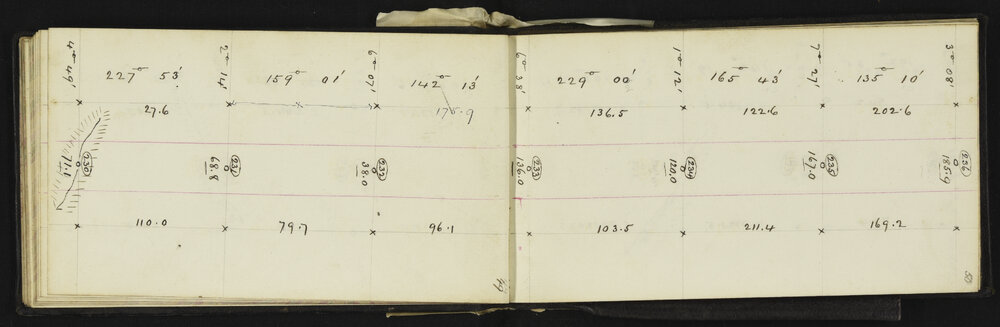 4° 49'
227° 53'
2° 14'
159° 01'
6° 07'
142° 13'
27.6
175.9
71.1
230
68.8
231
38.0
232
110.0
79.7
96.1
49
6° 38'
229° 00'
1° 12'
165° 43'
7° 27'
135° 10'
3° 08'
136.5
122.6
202.6
136.0
233
120.0
234
167.0
235
185.9
236
103.5
211.4
169.2
50